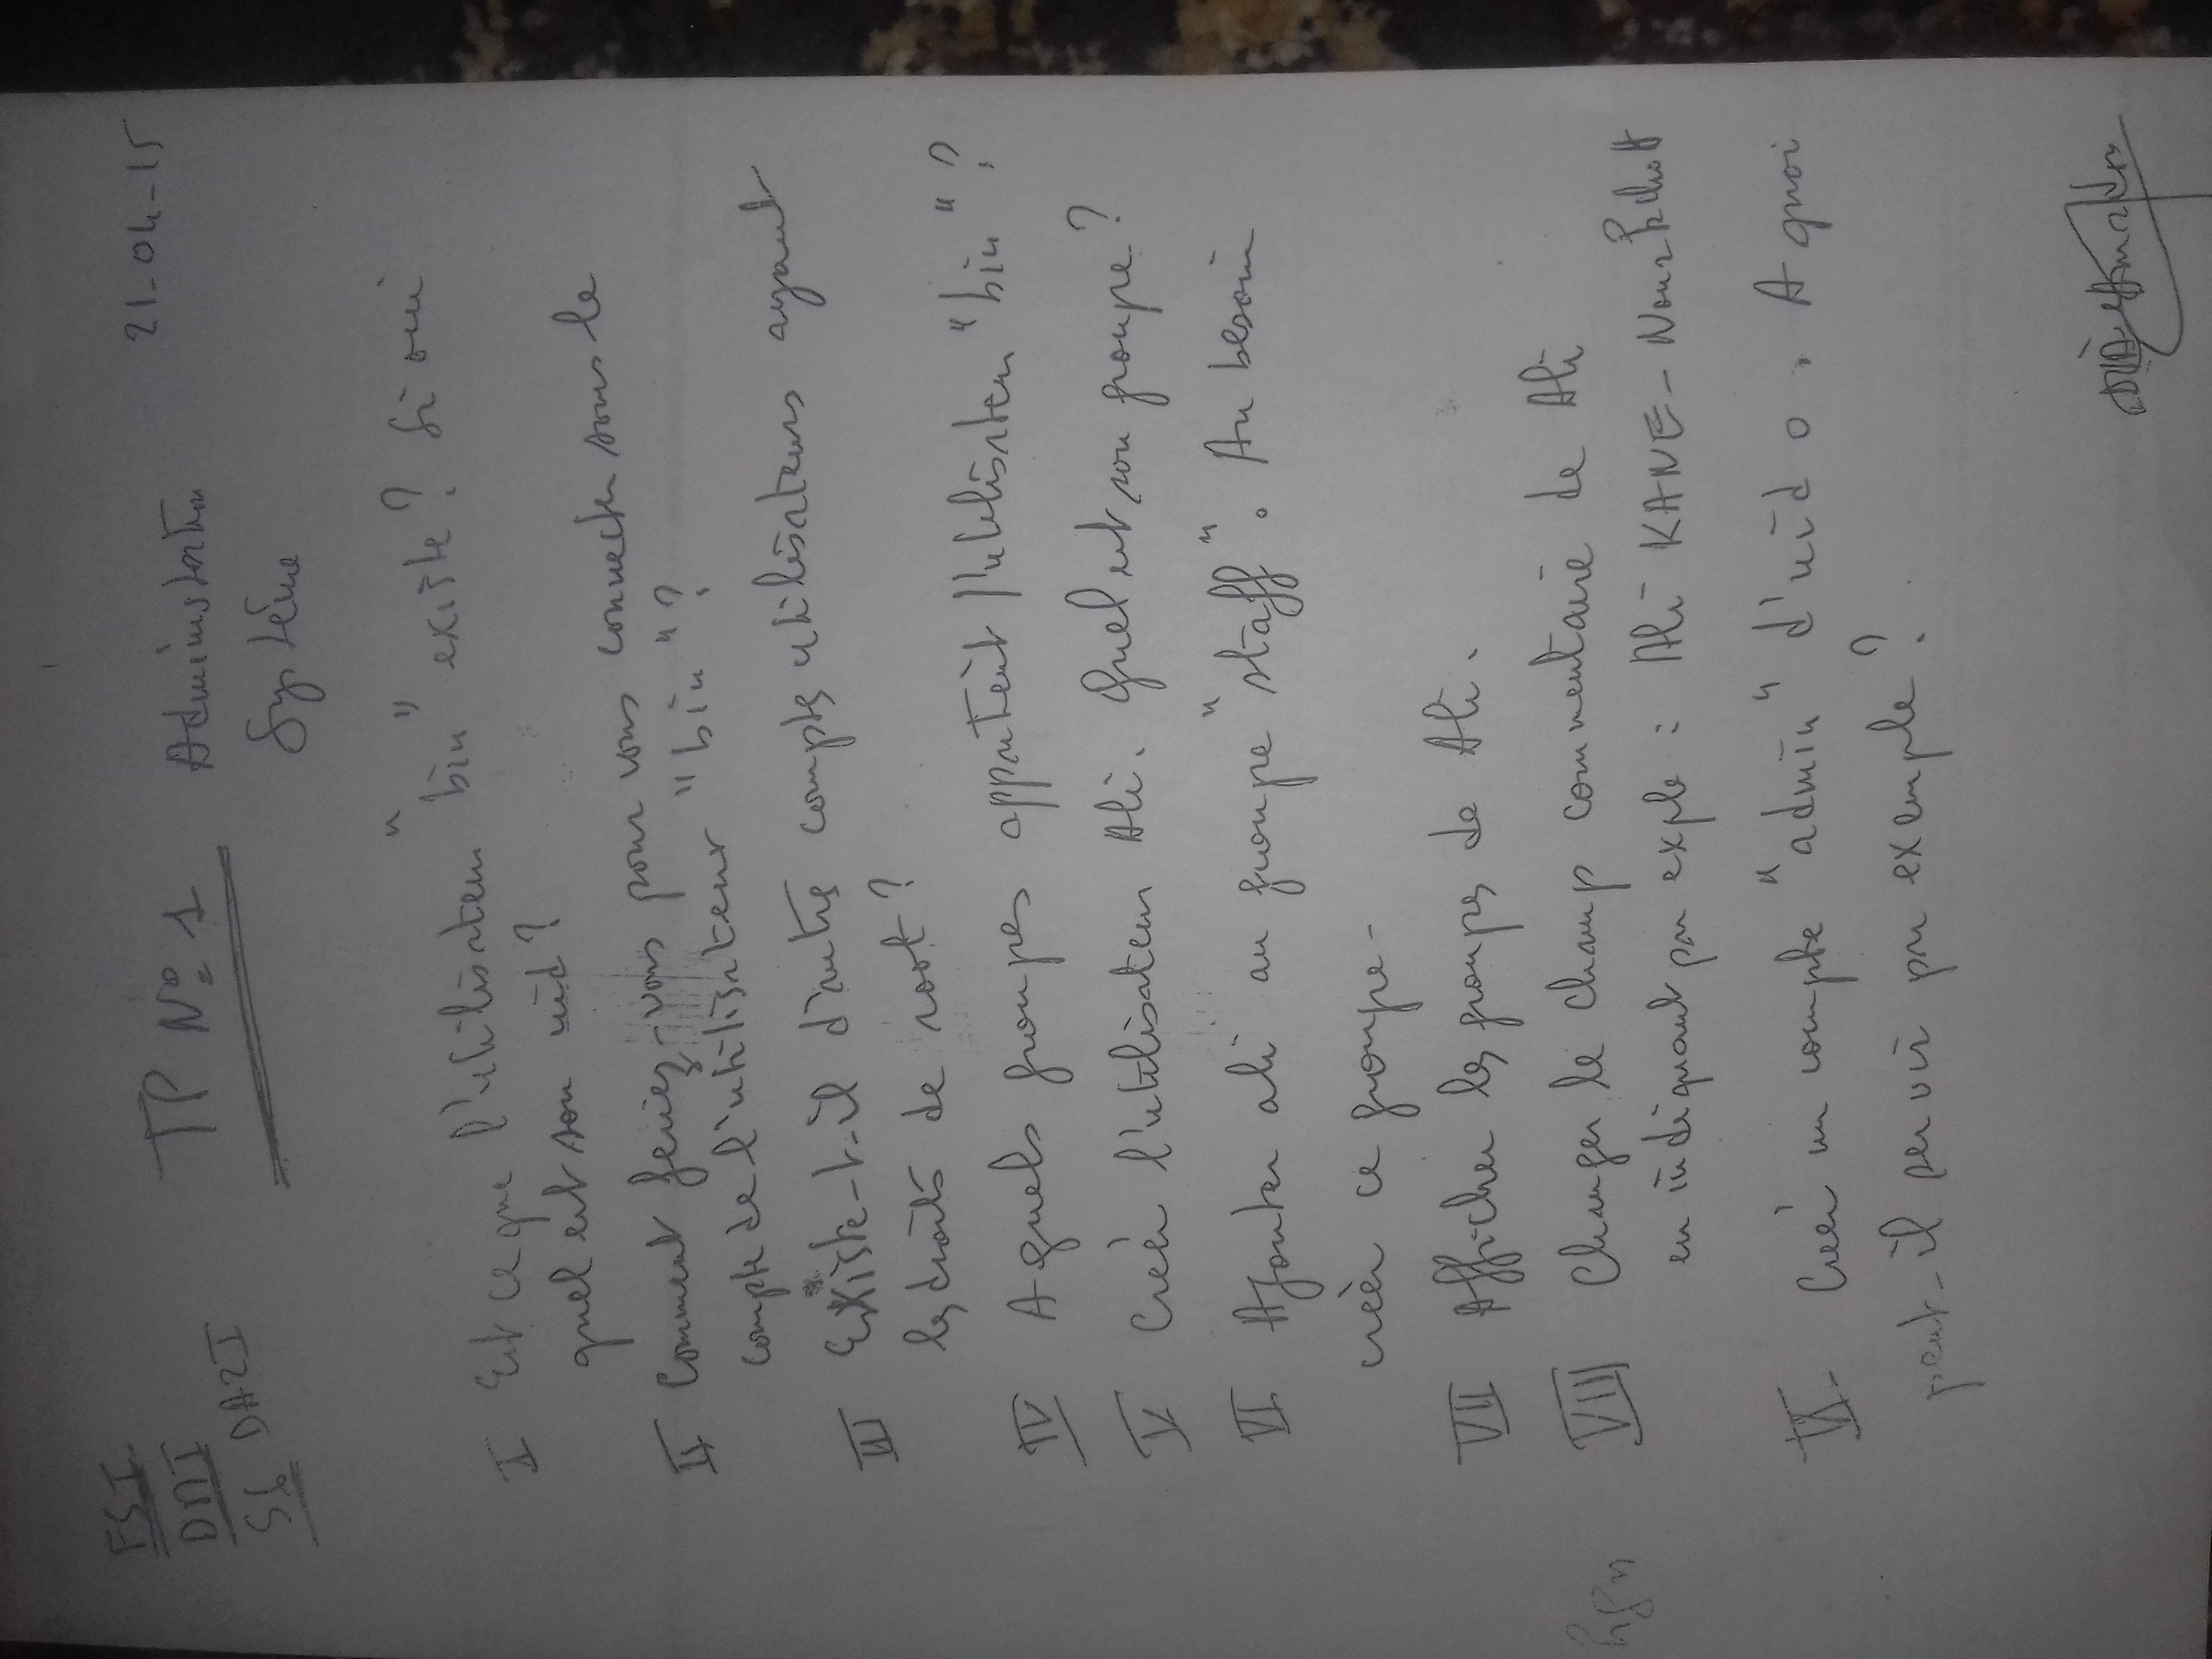 FSI
DMI
S6 DA2I
TP N° 1
Administration
Système
21-04-15
I Est ce que l'utilisateur "bin" existe? Si oui
quel est son uid?
II Comment feriez-vous pour vous connecter sous le
compte de l'utilisateur "bin"?
III Existe-t-il d'autres comptes utilisateurs ayant
les droits de root?
IV A quels groupes appartient l'utilisateur "bin"?
V Créer l'utilisateur Ali. Quel est son groupe?
VI Ajouter ali au groupe "staff". Au besoin
créer ce groupe-
VII Afficher les groupes de Ali.
VIII Changer le champ commentaire de Ali
en indiquant par exple : Ali KANE - Nouakchott
IX- Créer un compte "admin" d'uid 0. A quoi
peut-il servir par exemple?